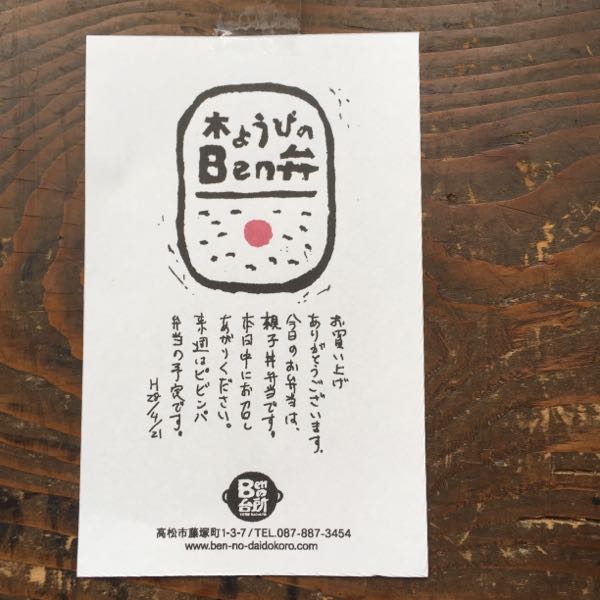 木ようびの
Ben弁
お買い上げ
ありがとうございます。
今日のお弁当は、
親子丼弁当です。
本日中にお召し
あがりください。
来週はビビンバ
弁当の予定です。
H28/4/21
Benの
台所
高松市藤塚町1-3-7/TEL.087-887-3454
www.ben-no-daidokoro.com